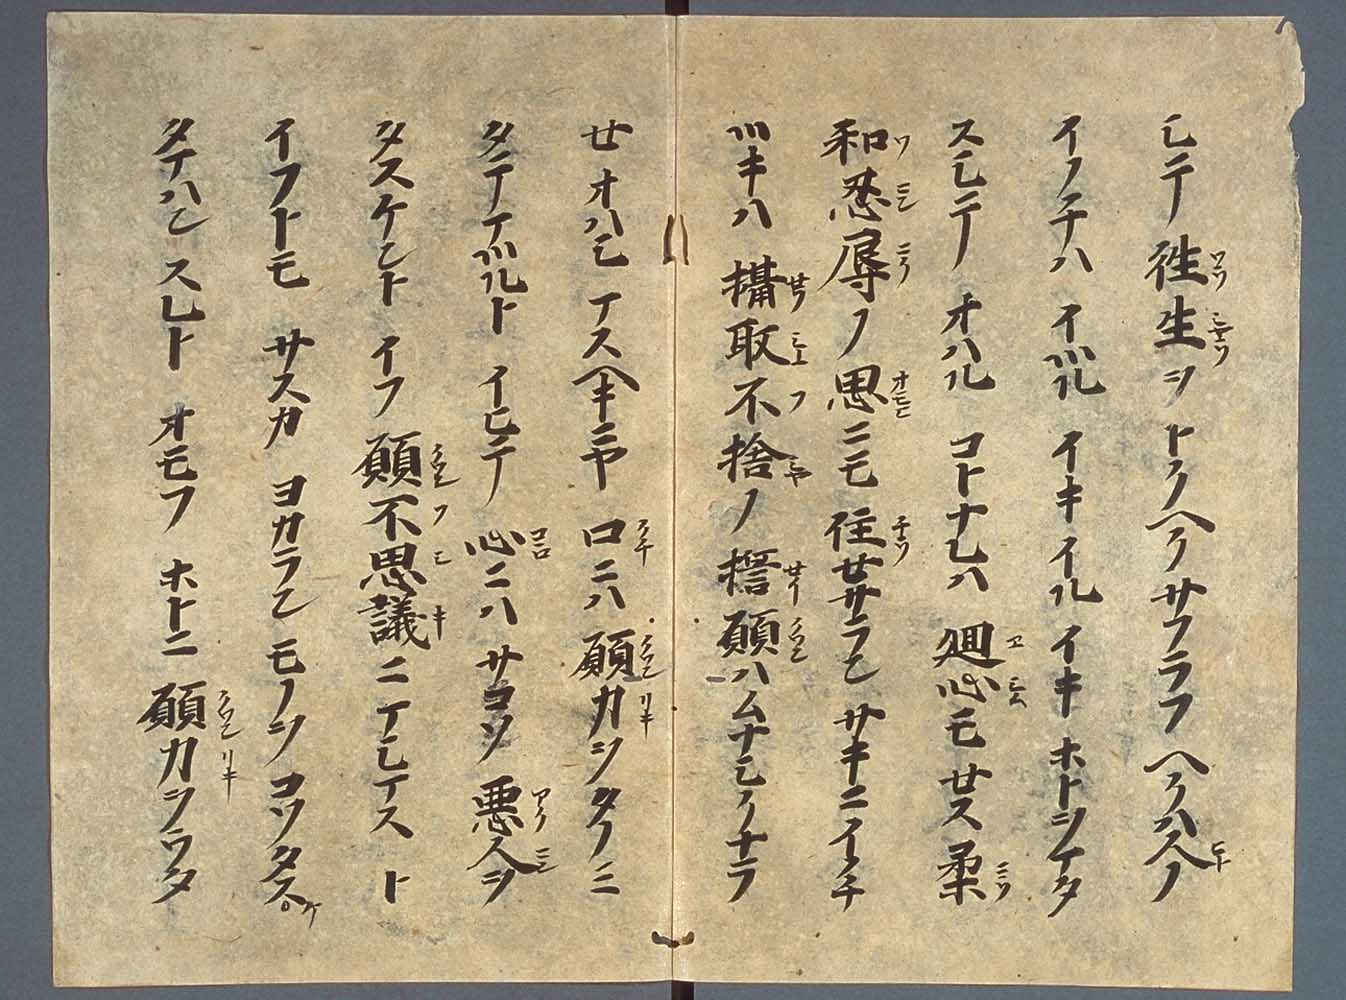 シテ 往生ヲ トクヘク サフラフ ヘクハ人ノ
イノチハ イツル イキ イル イキ ホトヲマタ
スシテ オハル コトナレハ 廻心モセス柔
和忍辱ノ思ニモ 住セサラン サキニイノチ
ツキハ 攝取不捨ノ 誓願ハムナシクナラ
セオハシマスヘキニヤ 口ニハ 願力ヲタノミ
タテマツルト イヒテ 心ニハ サコソ 悪人ヲ
タスケント イフ 願不思議ニマシマスト
イフトモ サスカ ヨカラン モノヲ コソタスケ
タマハンスレト オモフ ホトニ 願力ヲウタ